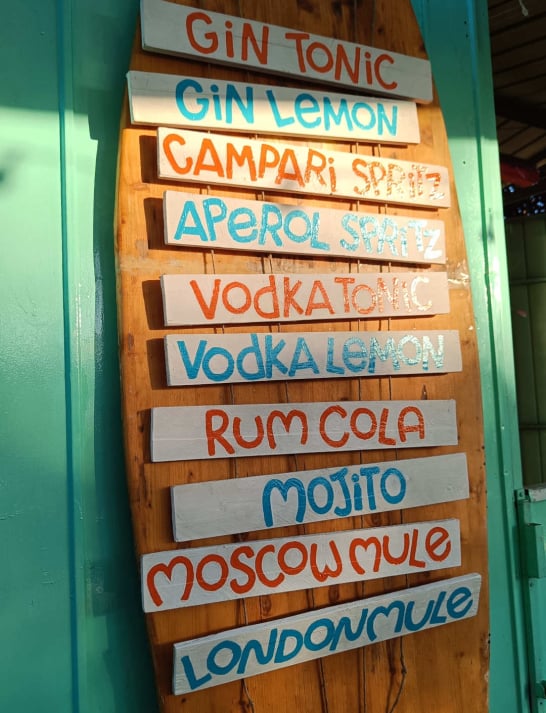 GiN TONiC
GiN LeMON
CAMPARi SPRiTZ
APeROL SPRiTZ
VOdKA TONiC
VOdKA LeMON
RUM COLA
MOJiTO
MOSCOW MULe
LONDON MULe